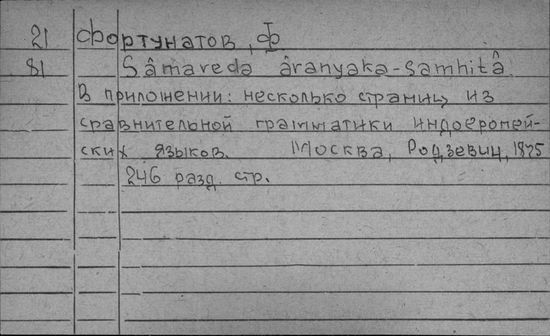 21 Фортунатов, Ф
81 Sâmaveda âranyaka-Samhitâ
В приложении: несколько страниц из
сравнительной грамматики индоеропей-
ских языков. Москва, Родзевич, 1875
246 разд. стр.